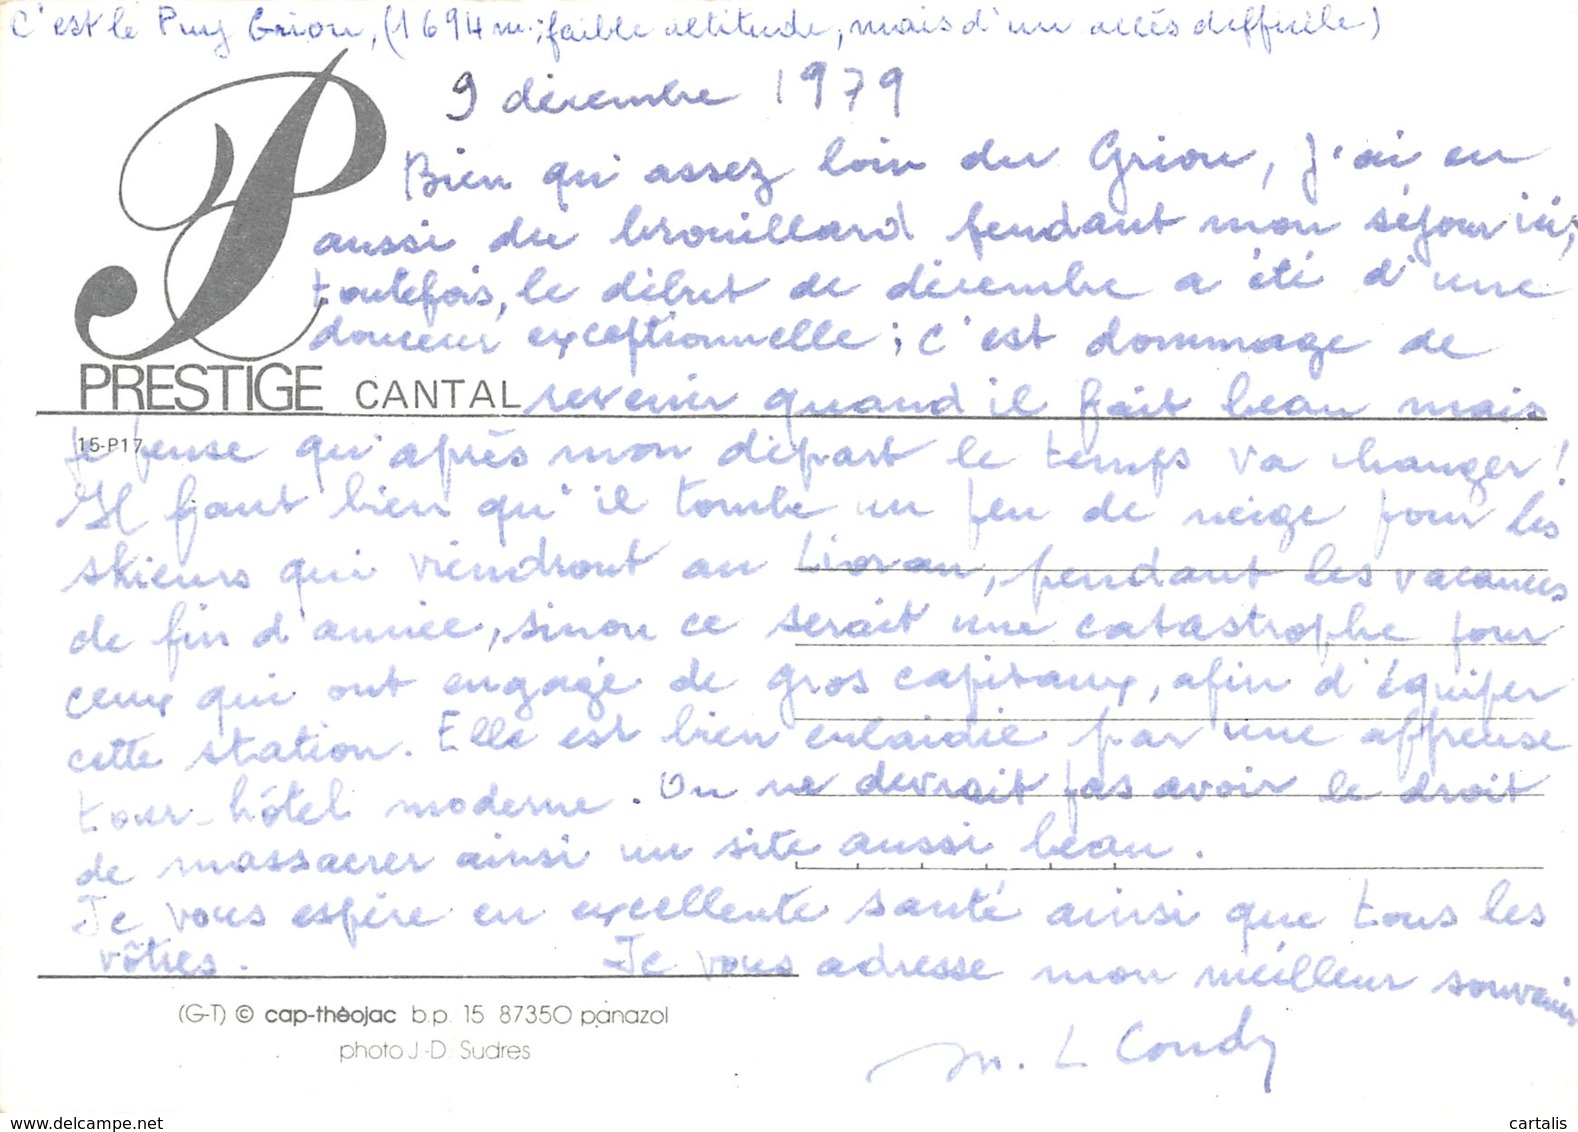 C'est le Puy Griou, (1694 m.; faible altitude, mais d'un accès difficile)
9 décembre 1979
Bien qu'assez loin du Griou, j'ai eu
aussi du brouillard pendant mon séjour ici,
toutefois, le début de décembre a été d'une
douceur exceptionnelle; c'est dommage de
PRESTIGE CANTAL revenir quand il fait beau mais
15-P17
je pense qu'après mon départ le temps va changer!
Il faut bien qu'il tombe un peu de neige pour les
skieurs qui viendront au Lioran, pendant les vacances
de fin d'année, sinon ce serait une catastrophe pour
ceux qui ont engagé de gros capitaux, afin d'équiper
cette station. Elle est bien enlaidie par une affreuse
tour-hôtel moderne. On ne devrait pas avoir le droit
de massacrer ainsi un site aussi beau.
Je vous espère en excellente santé ainsi que tous les
vôtres. Je vous adresse mon meilleur souvenir
M. L Coudy
(G-T) © cap-thèojac b.p. 15 87350 panazol
photo J.-D. Sudres
www.delcampe.net
cartalis